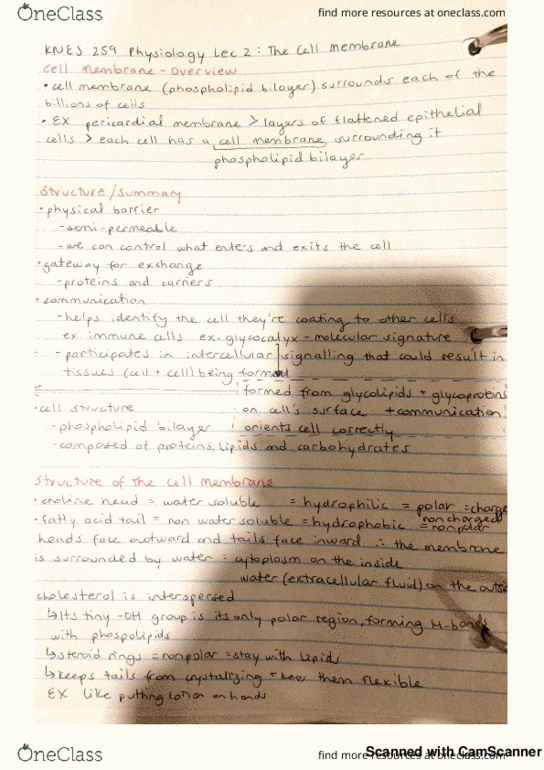 OneClass
find more resources at oneclass.com
KNES 259 Physiology Lec 2: The Cell Membrane
Cell Membrane - Overview
• cell membrane (phospholipid bilayer) surrounds each of the
billions of cells
• EX pericardial membrane > layers of flattened epithelial
cells > each cell has a cell membrane, surrounding it
phospholipid bilayer
Structure/Summary
• physical barrier
- semi-permeable
- we can control what enters and exits the cell
• gateway for exchange
- proteins and carriers
• communication
- helps identify the cell they're coating to other cells
ex immune cells ex. glycocalyx - molecular signature
- participates in intercellular signalling that could result in
tissues (cell + cell) being formed
formed from glycolipids + glycoproteins
• cell structure on cell's surface + communication
- phospholipid bilayer orients cell correctly
- composed of proteins, lipids and carbohydrates
Structure of the cell membrane
• choline head = water soluble = hydrophilic = polar = charge
• fatty acid tail = non water soluble = hydrophobic = nonpolar noncharged
heads face outward and tails face inward ∴ the membrane
is surrounded by water = cytoplasm on the inside
water (extracellular fluid) on the outs
cholesterol is interspersed
↳ Its tiny -OH group is its only polar region, forming H-bonds
with phospolipids
↳ steroid rings = nonpolar = stay with lipids
↳ keeps tails from crystalizing + keep them flexible
EX like putting lotion on hands
OneClass
find more resources at oneclass.com
Scanned with CamScanner